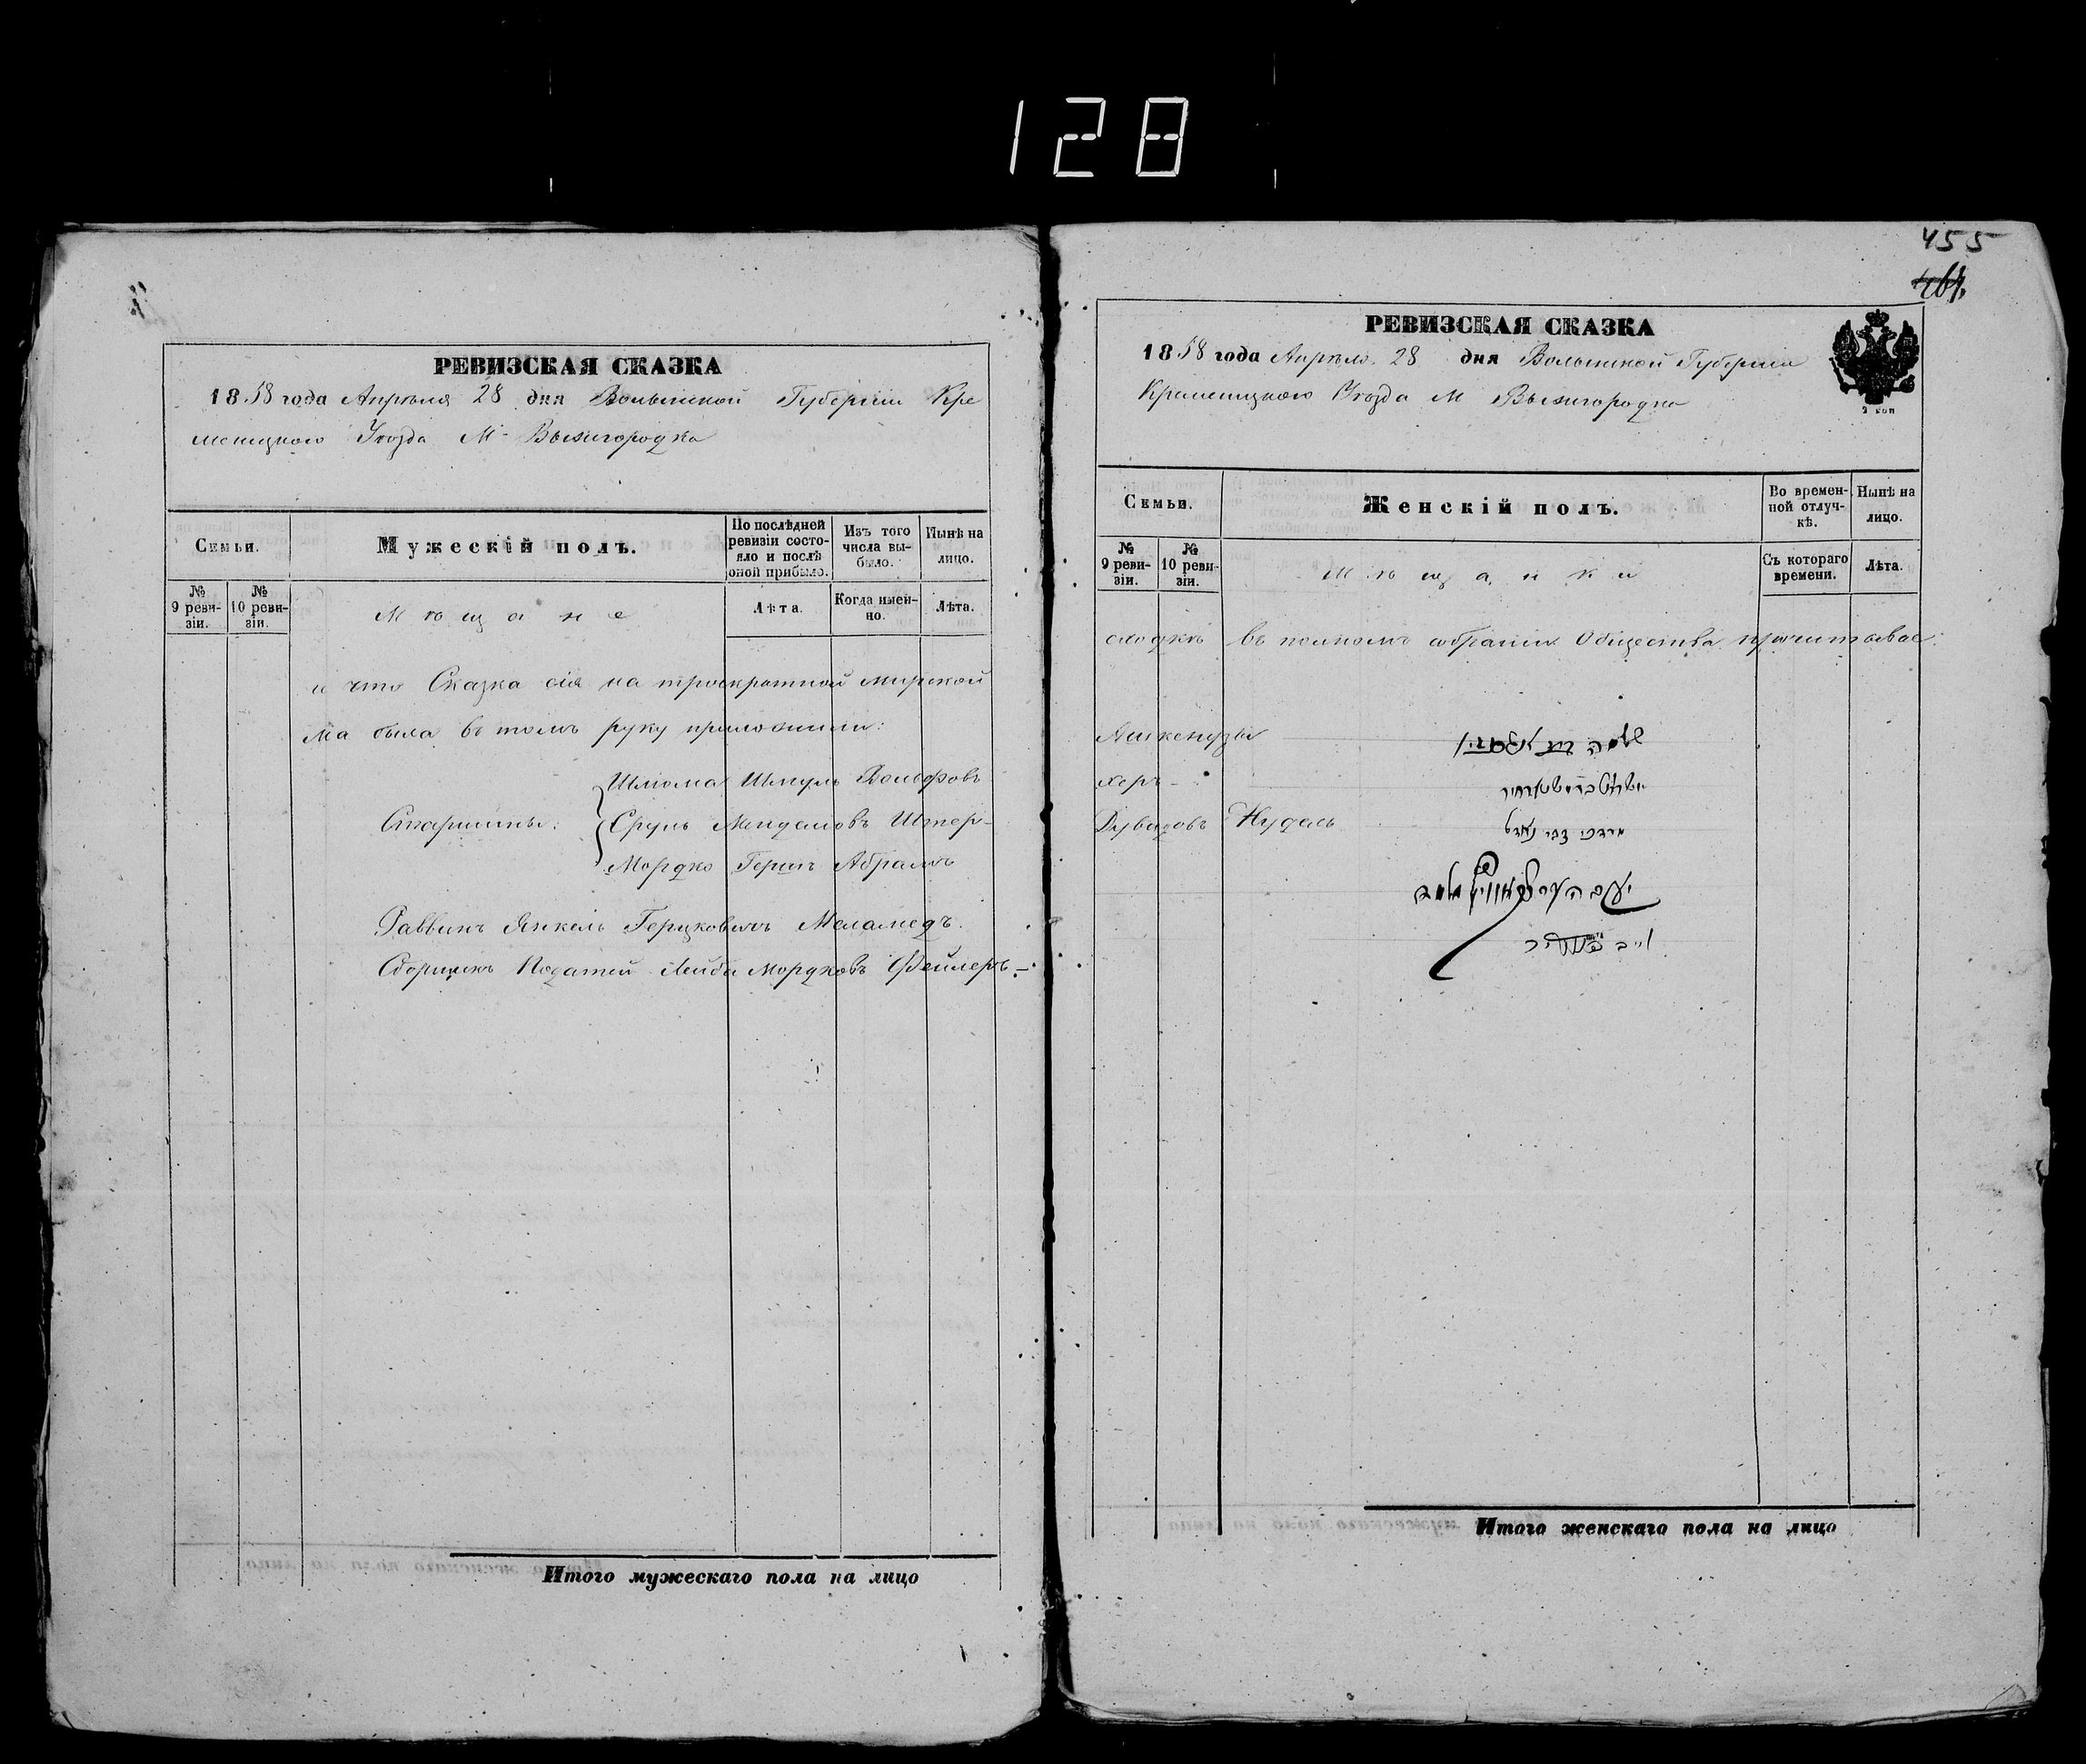 128
РЕВИЗСКАЯ СКАЗКА
1858 года Апрѣля 28 дня Волынской Губерніи Кре
менецкого Уѣзда М. Вышгородка
Семьи.
Мужескій полъ.
По послѣдней ревизіи состояло и послѣ оной прибыло.
Изъ того числа выбыло.
Нынѣ на лицо.
№ 9 ревизіи.
№ 10 ревизіи.
Мѣщане
Лѣта.
Когда именно.
Лѣта.
и что Сказка сія на троекратной мирской
ма была въ томъ руку приложили:
Старшины:
Шлиома Шмуль
Сруль Менделовъ Штер-
Мордко Герш Абрамъ
Раввинъ Янкель Герцковичъ Меламедъ.
Сборщикъ Податей Лейба Мордковъ Фейлеръ
455
РЕВИЗСКАЯ СКАЗКА
1858 года Апрѣля 28 дня Волынской Губерніи
Кременецкого Уѣзда М Вышгородка
2 коп
Семьи.
Женскій полъ.
Во временной отлучкѣ.
Нынѣ на лицо.
№ 9 ревизіи.
№ 10 ревизіи.
Мѣщанки
Съ котораго времени.
Лѣта.
сходкѣ въ полномъ собраніи Общества прочитывае:
Ашкенузы
херъ
Дувидовъ Нудель
מרדכי צבי נאדל
Итого мужескаго пола на лицо
Итого женскаго пола на лицо